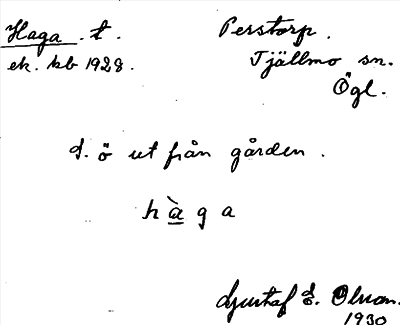 Haga . t . Perstorp .
ek. kb 1928 . Tjällmo sn.
Ögl.
d. ö ut från gården .
h à g a
Gustaf E. Olson.
1930